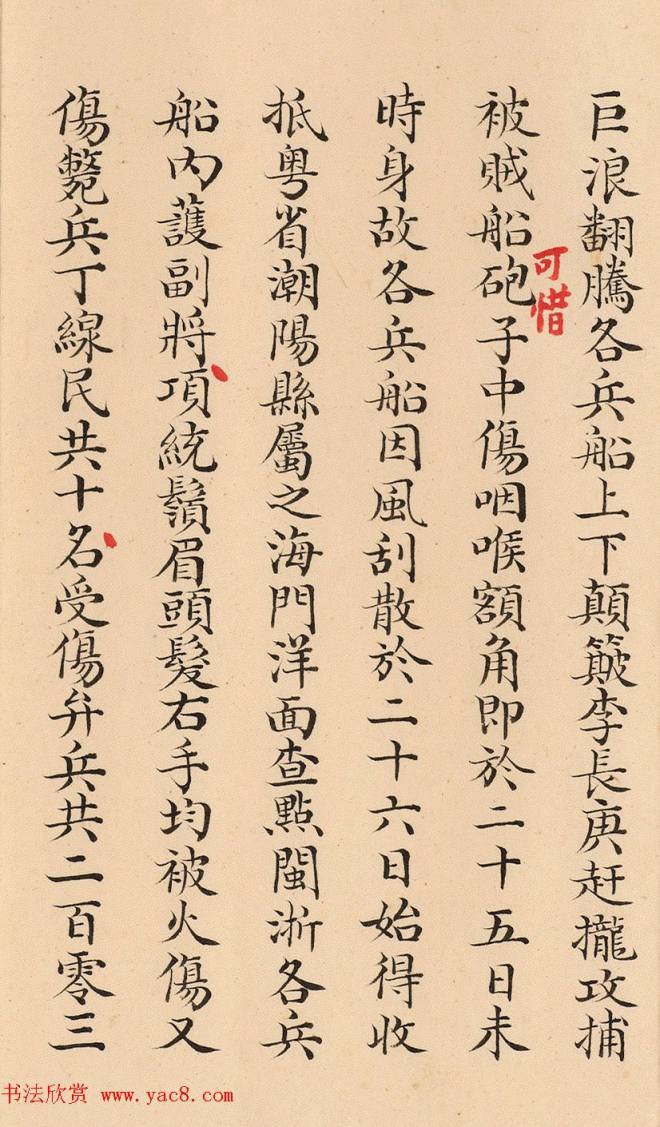 巨浪翻騰各兵船上下顛簸李長庚赶攏攻捕
被賊船砲子中傷咽喉額角即於二十五日未
可惜
時身故各兵船因風刮散於二十六日始得收
抵粤省潮陽縣屬之海門洋面查點閩浙各兵
船內護副將項統鬚眉頭髮右手均被火傷又
傷斃兵丁線民共十名受傷弁兵共二百零三
书法欣赏 www.yac8.com